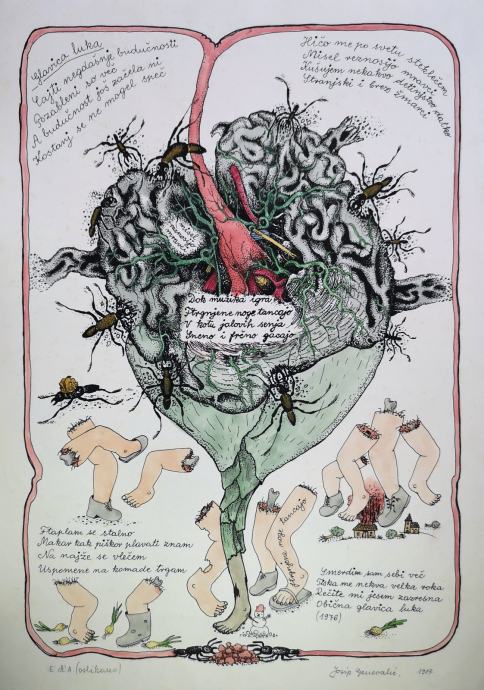 Glavica luka
Cajti negdašnje budučnosti
Pozableni so več
A budučnost još začela ni
Kostanj se ne mogel speč
Hičo me po svetu steklečom
Misel reznosijo mravci
Kušujem nekakvo
Stranjski i brez žmanei
Dok muzika igra
Strgnjene noge tancajo
V kotu jalovih senja
Sneno i frčno gacajo
strgnjene noge tancajo
Flaplam se stalno
Makar kak piškor plavati znam
Na najže se vlečem
Uspomene na komade trgam
Smerdim sam sebi več
Tiska me nekva velka roka
Rečite mi jesem zavresna
Obična glavica luka
(1976)
E d'A. (oslikano)
Josip Generalić, 1987.